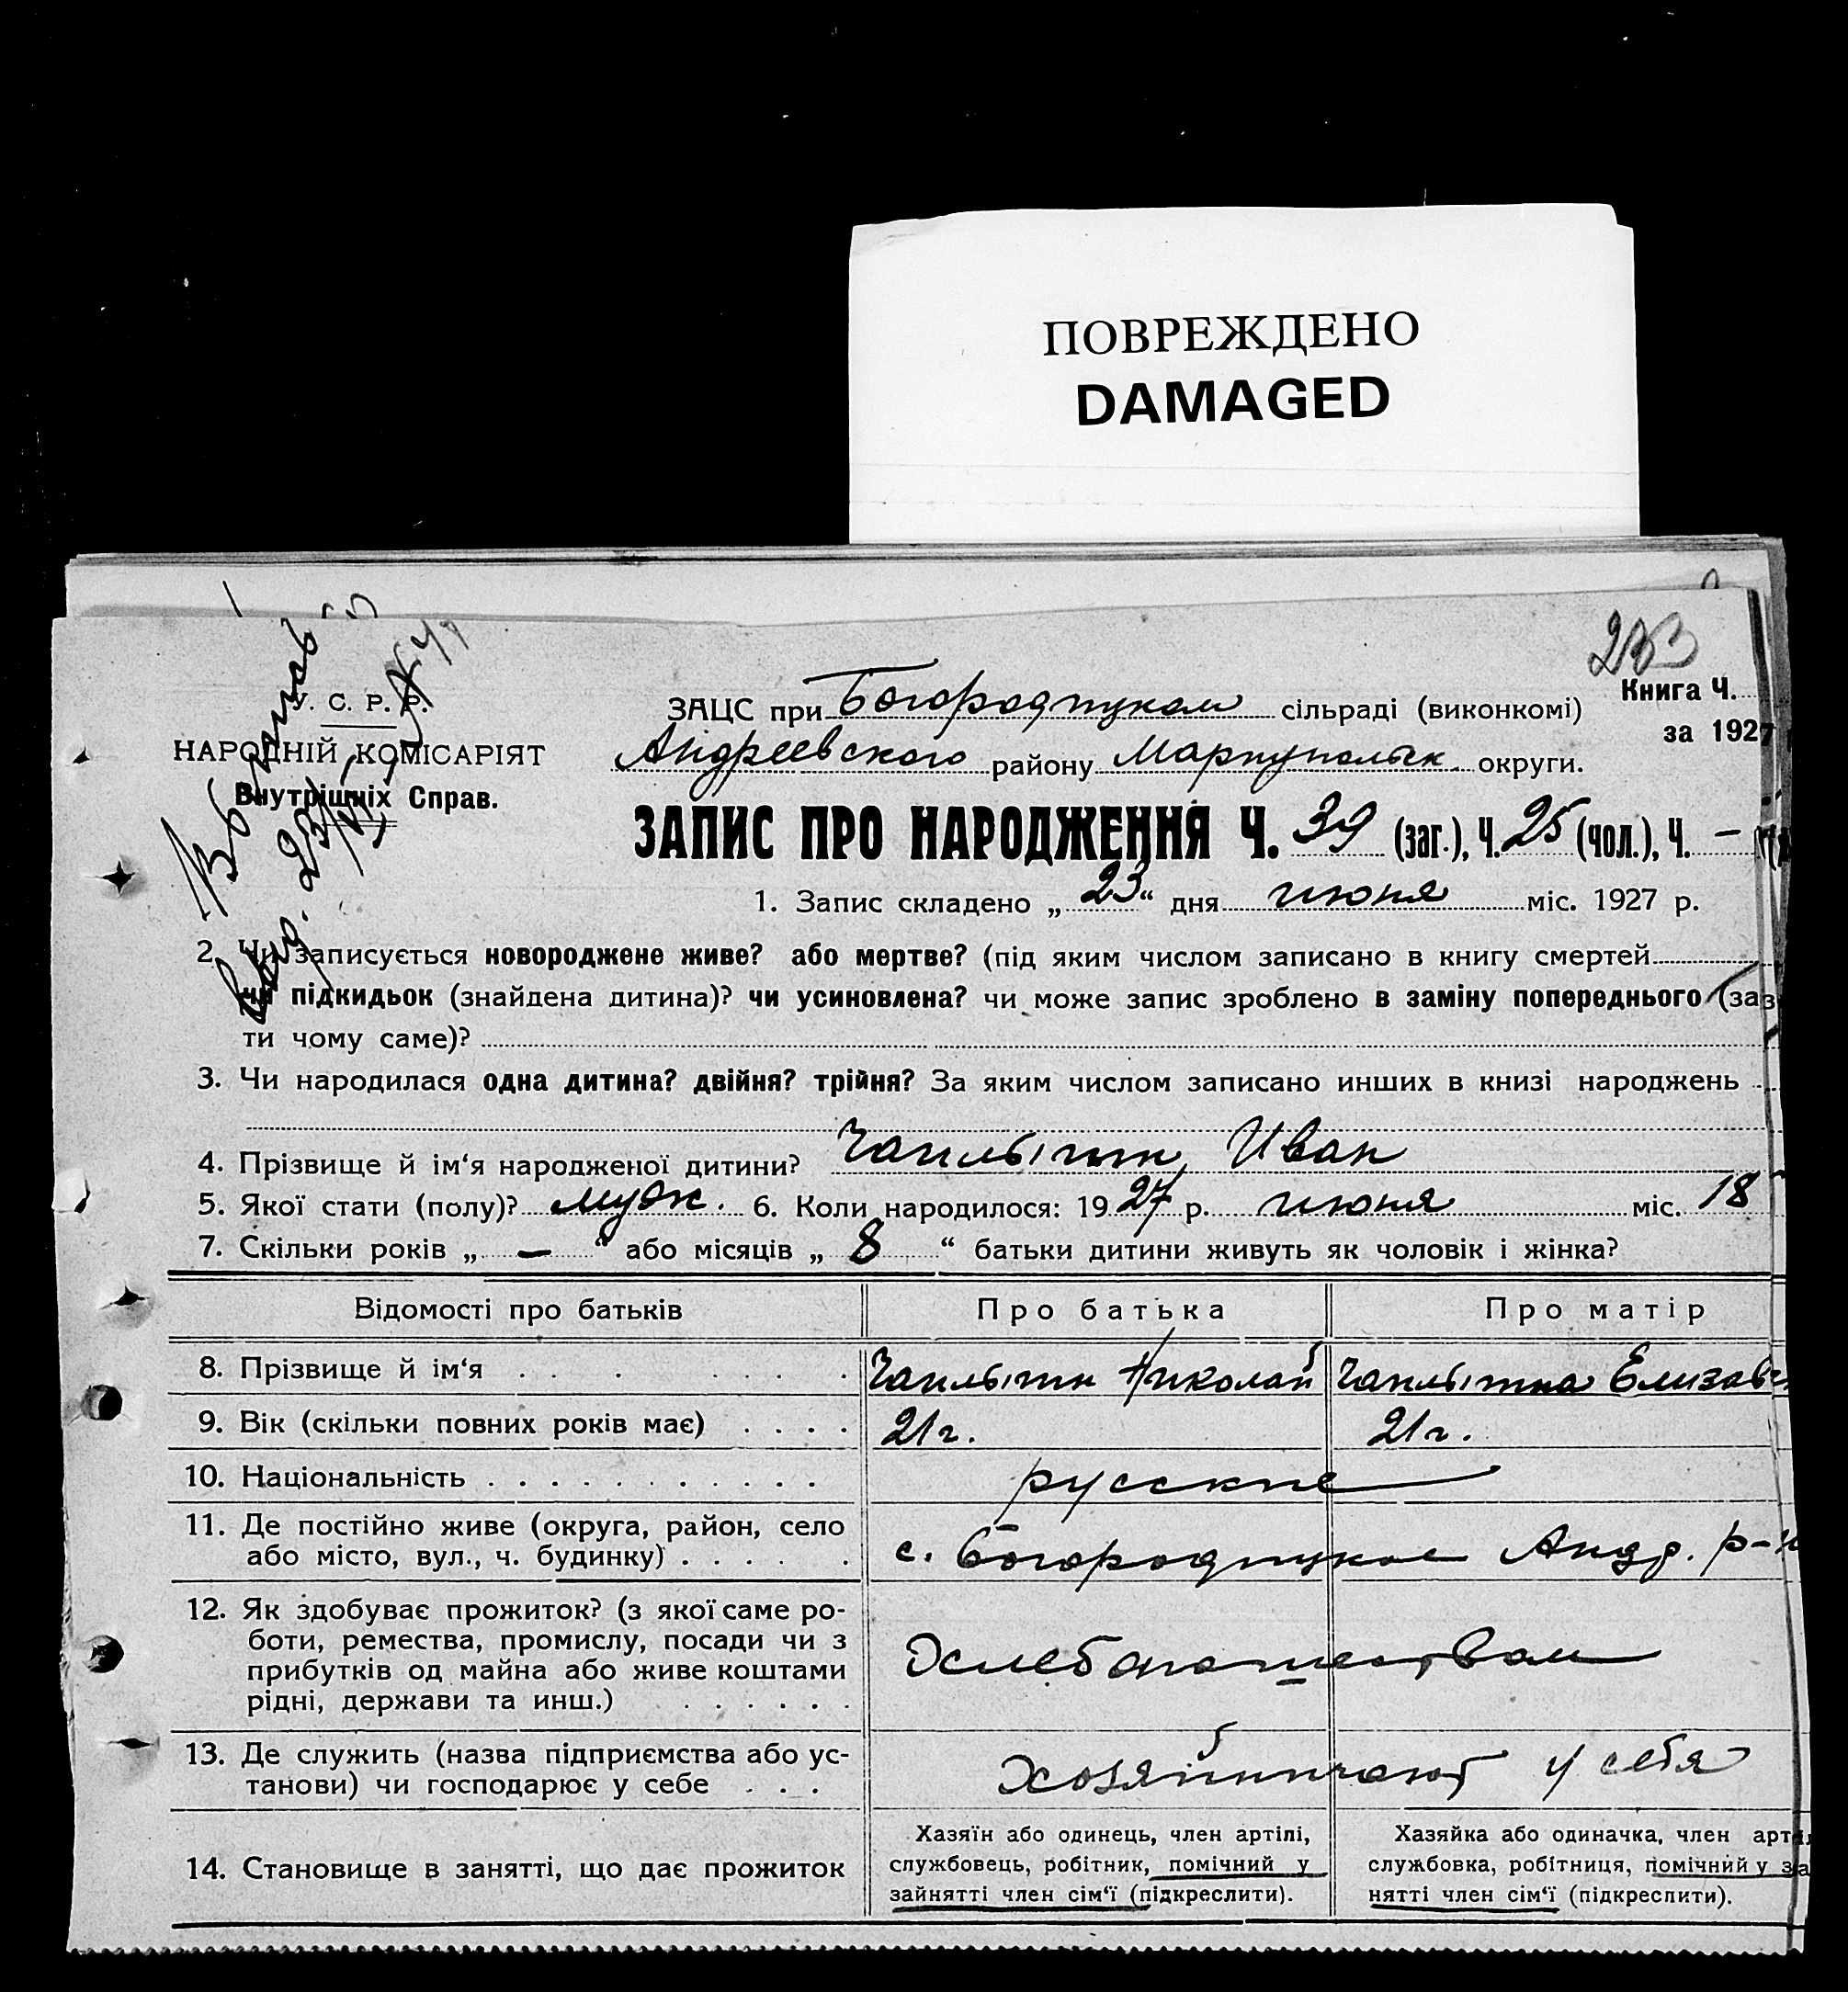 ПОВРЕЖДЕНО
DAMAGED
233
У. С. Р. Р.
НАРОДНІЙ КОМІСАРІЯТ
Внутрішніх Справ.
Книга Ч.
за 1927
ЗАЦС при Богородицком сільраді (виконкомі)
Андреевского району Мариупольск. округи.
ЗАПИС ПРО НАРОДЖЕННЯ Ч. 39 (заг.), Ч. 25 (чол.), Ч. —
1. Запис складено „ 23 “ дня июня міс. 1927 р.
2. Чи записується новороджене живе? або мертве? (під яким числом записано в книгу смертей
чи підкидьок (знайдена дитина)? чи усиновлена? чи може запис зроблено в заміну попереднього (заз
ти чому саме)?
3. Чи народилася одна дитина? двійня? трійня? За яким числом записано инших в книзі народжень
4. Прізвище й ім‘я народженої дитини? Чаплыгин Иван
5. Якої стати (полу)? мужс. 6. Коли народилося: 1927 р. июня міс. 18
7. Скільки років „ — “ або місяців „ 8 “ батьки дитини живуть як чоловік і жінка?
Відомості про батьків Про батька Про матір
8. Прізвище й ім‘я Чаплыгин Николай Чаплыгина Елизаве
9. Вік (скільки повних років має) 21 г. 21 г.
10. Національність русские
11. Де постійно живе (округа, район, село
або місто, вул., ч. будинку) с. Богородицкое Андр. р-н
12. Як здобуває прожиток? (з якої саме ро-
боти, ремества, промислу, посади чи з
прибутків од майна або живе коштами
рідні, держави та инш.) Хлебопашеством
13. Де служить (назва підприємства або ус-
танови) чи господарює у себе Хозяйничают у себя
14. Становище в занятті, що дає прожиток
Хазяїн або одинець, член артілі,
службовець, робітник, помічний у
зайнятті член сім‘ї (підкреслити).
Хазяйка або одиначка, член арті
службовка, робітниця, помічний у за
нятті член сім‘ї (підкреслити).